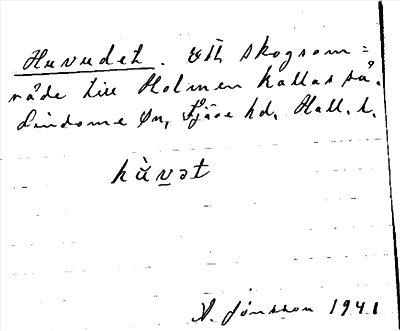 Huvudet. Ett skogsom=
råde till Holmen kallas så.
Lindome sn, Fjäre hd, Hall. l.
hùvət
A. Jönsson 1941.